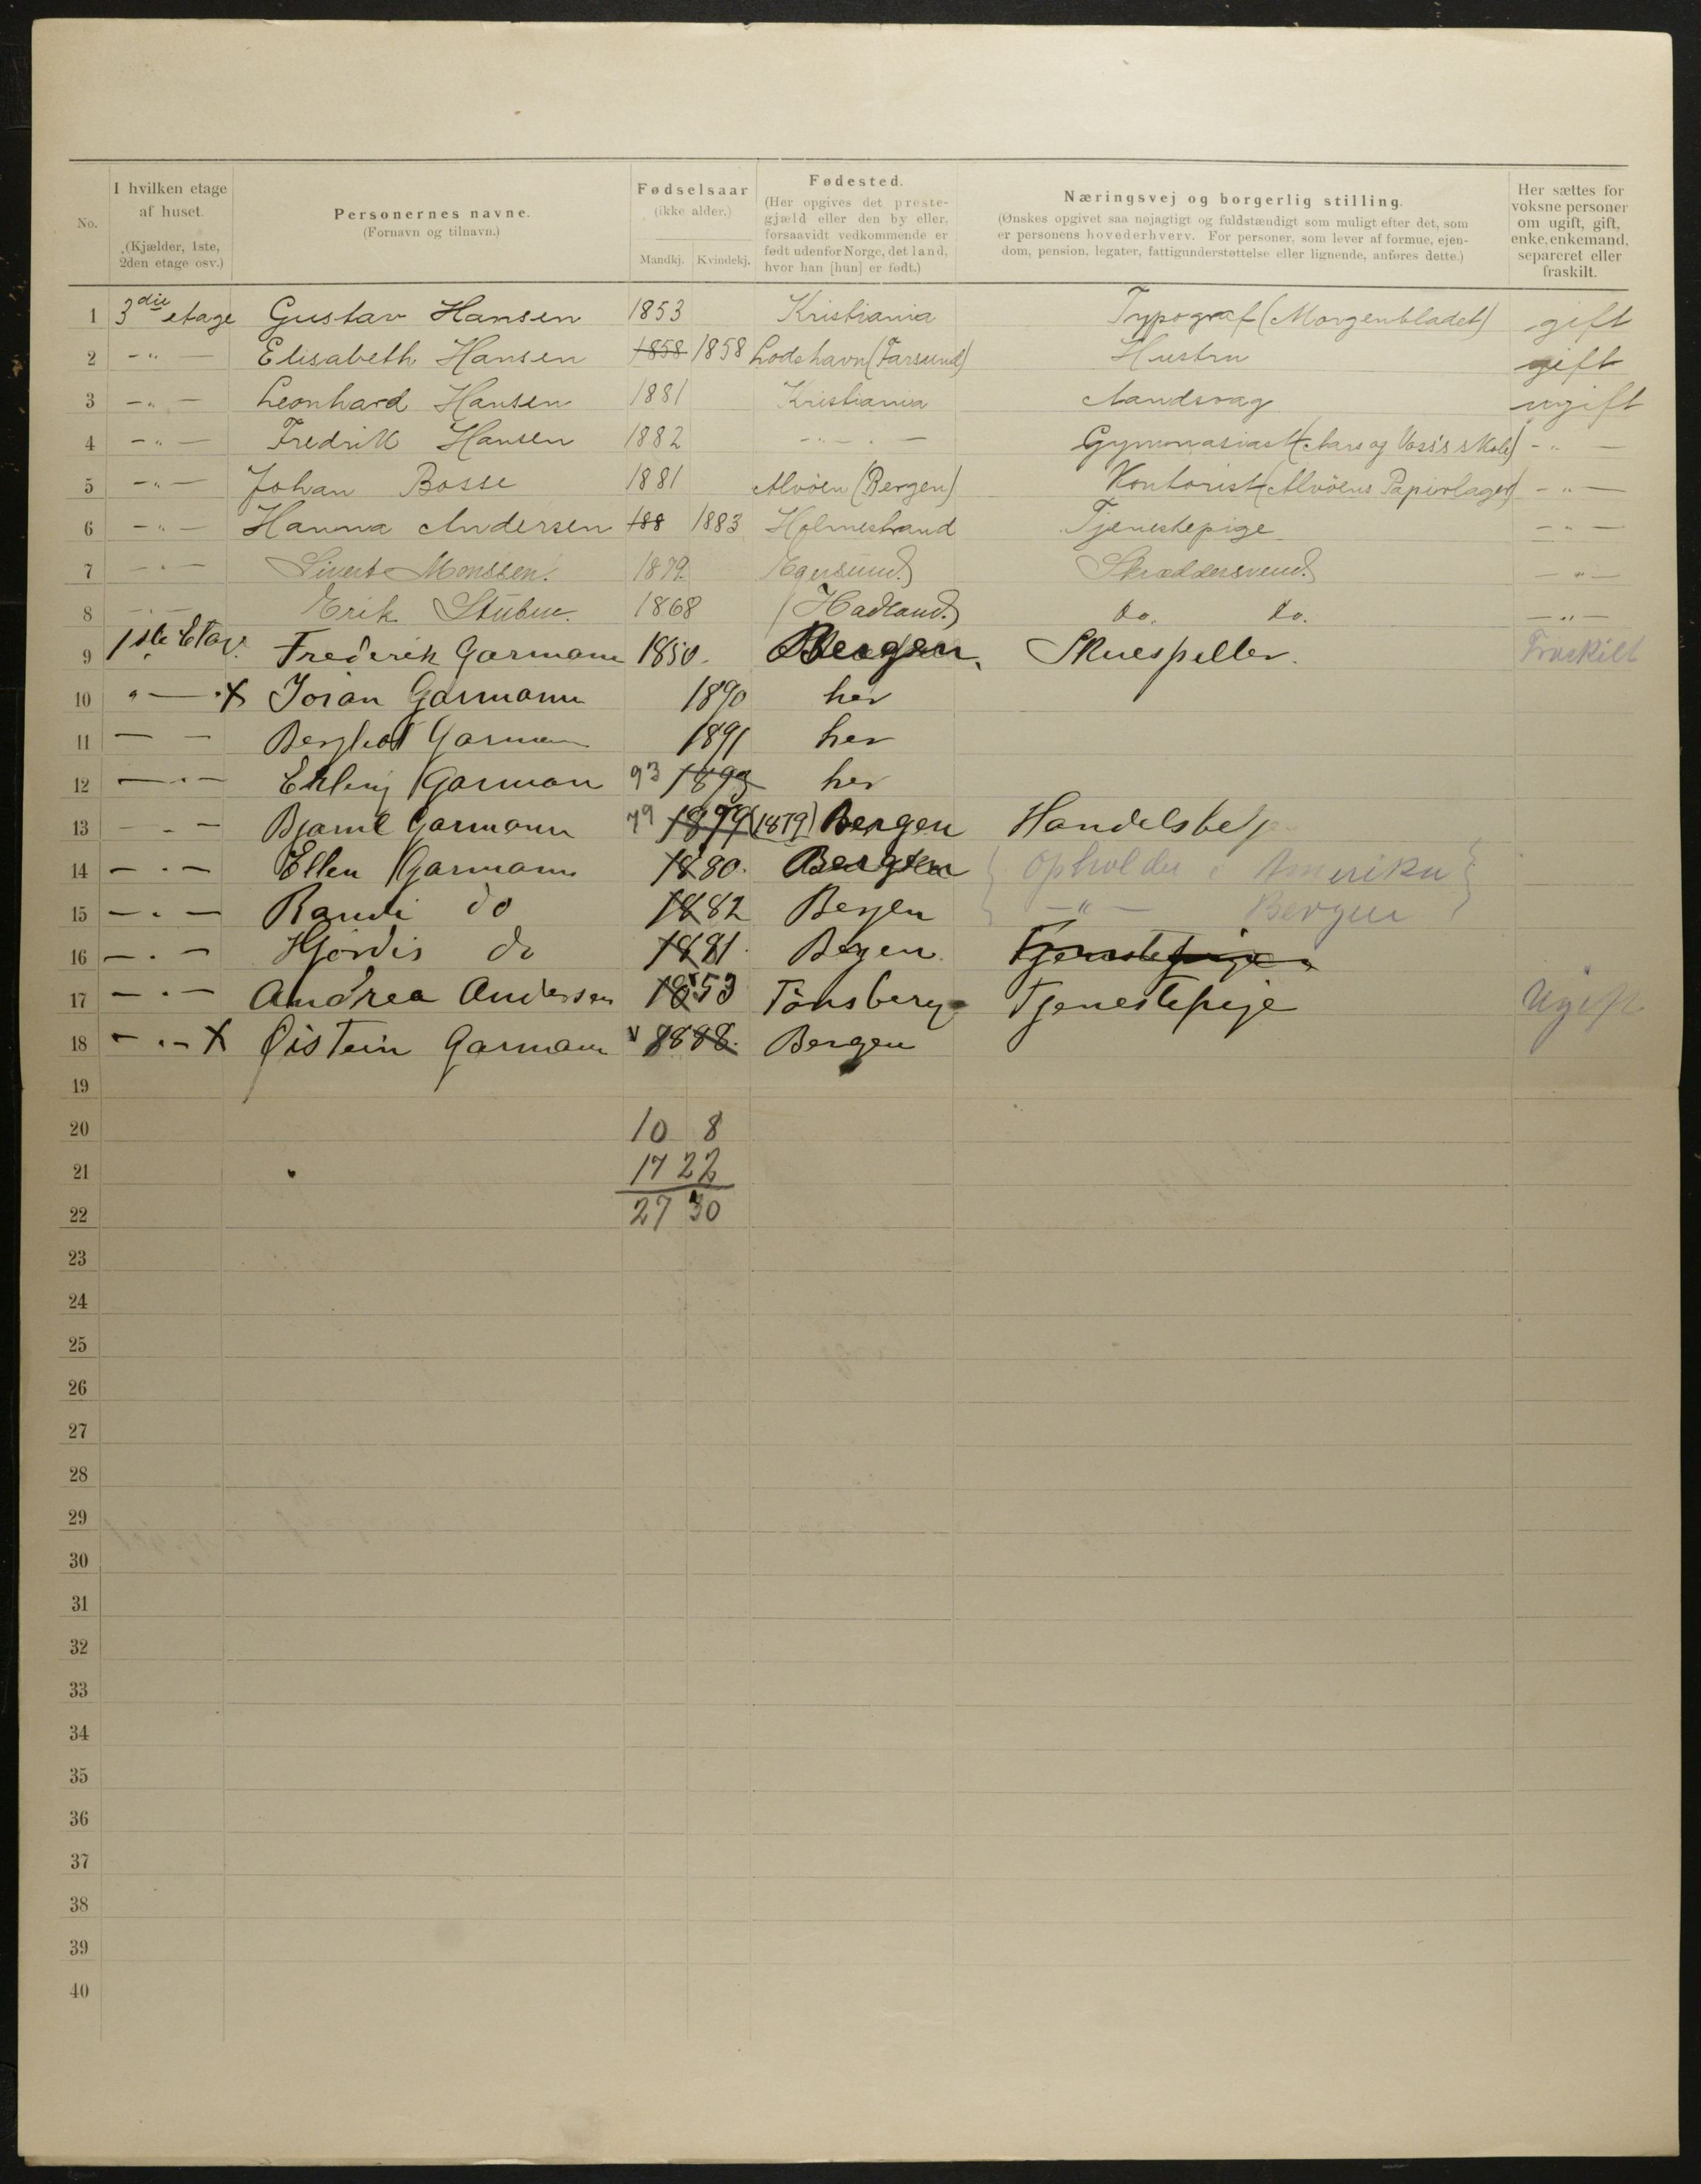 No.
I hvilken etage
af huset.
(Kjælder, 1ste,
2den etage osv.)
Personernes navne.
(Fornavn og tilnavn.)
Fødselsaar
(ikke alder.)
Mandkj. Kvindekj.
Fødested.
(Her opgives det preste-
gjæld eller den by eller,
forsaavidt vedkommende er
født udenfor Norge, det land,
hvor han [hun] er født.)
Næringsvej og borgerlig stilling.
(Ønskes opgivet saa nøjagtigt og fuldstændigt som muligt efter det, som
er personens hovederhverv. For personer, som lever af formue, ejen-
dom, pension, legater, fattigunderstøttelse eller lignende, anføres dette.)
Her sættes for
voksne personer
om ugift, gift,
enke, enkemand,
separeret eller
fraskilt.
1 3die etage Gustav Hansen 1853 Kristiania Typograf (Morgenbladet) gift
2 - " - Elisabeth Hansen 1858 1858 Lodshavn (Farsund) Hustru gift
3 - " - Leonhard Hansen 1881 Kristiania ugift
4 - " - Fredrik Hansen 1882 - " - Gymnasiast (Aars og Voss's skole) - " -
5 - " - Johan Bosse 1881 Alvöen (Bergen) Kontorist (Alvöens Papirlager) - " -
6 - " - Hanna Andersen 188 1883 Holmestrand Tjenestepige - " -
7 - " - Sivert Monssen. 1879. Egersund.) Skræddersvend. - " -
8 - " - Erik 1868 (Hadland.) do. do. - " -
9 1ste Etag. Frederik Garmann 1850. Bergen. Skuespiller. Fraskilt
10 " - X Joran Garmann 1890 her
11 - - Bergliot Garmann 1891 her
12 - " - Erling Garmann 93 1893 her
13 - " - Bjarne Garmann 79 1879 (1879) Bergen Handelsbetj
14 - " - Ellen Garmann 1880. Bergen { Opholder i Amerika }
15 - " - Randi do 1882 Bergen { - " - Bergen }
16 - " - Hjördis do 1881. Bergen. Tjenestepige
17 - " - Andrea Andersen 1853 Tönsberg Tjenestepige Ugift
18 - " - X Øistein Garmann 1888. Bergen
19
20 10 8
21 17 22
22 27 30
23
24
25
26
27
28
29
30
31
32
33
34
35
36
37
38
39
40